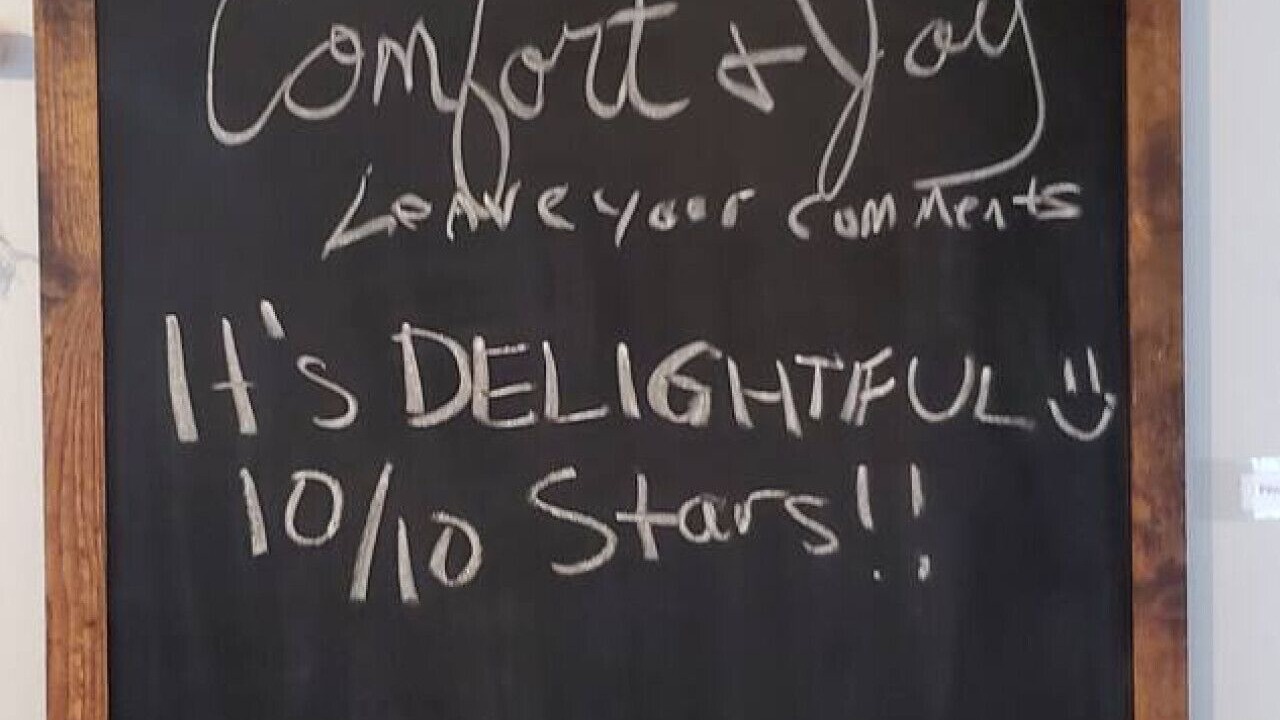 Comfort & Joy
Leave your comments
It's DELIGHTFUL
10/10 Stars!!